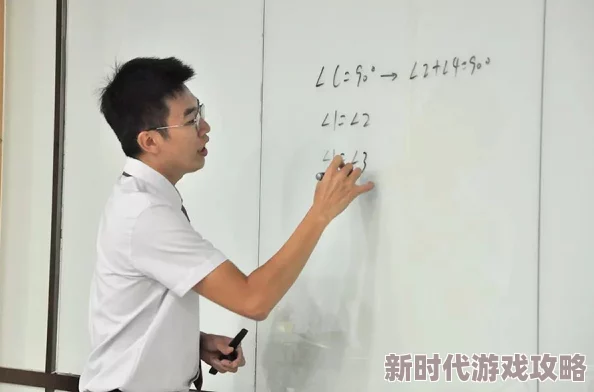 ∠C=90° → ∠2+∠4=90°
∠1=∠2
∠1=∠3
新时代游戏攻略